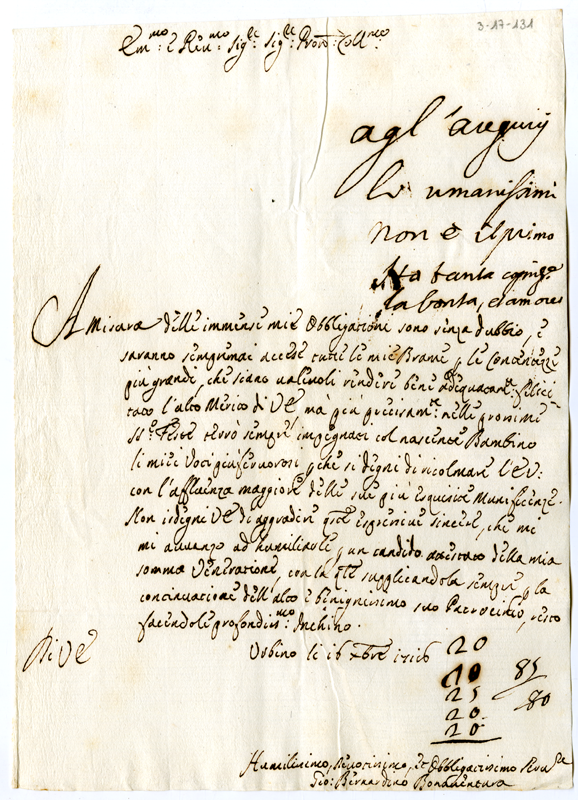 3-17-131
Em:mo e Rev:mo Sig:re Sig:re Pron: Coll:mo
agl'augurij
li umanissimi
non è il primo
sta tanta
la bontà, et amore
A Misura delle immense mie Obbligazioni sono senza dubbio, e
saranno sempremai accese tutte le mie Brame p le Contentezze
più grandi, che siano valevoli rendere bene adequatam:te felici-
tato l'alto Merito di VE mà più precisam:te nelle prossime
SS:e Feste terrò sempre impegnati col nascente Bambino
li miei Voti più fervorosi, pche si degni di ricolmare l'EV:
con l'affluenza maggiore delle sue più esquisite Munificenze.
Non isdegni VE di aggradire qste espressive sincere, che mi
mi avvanzo ad humiliarle, p un candido attestato della mia
somma Venerazione, con la qle supplicandola sempre p la
continuazione dell'alto e benignissimo suo Patrocinio, resto
facendole profondiss:mo Inchino.
Di VE
Urbino li 16 Xbre 1716
20
10
25
20
20
85
80
Humilissimo, Devotissimo, et Obbligatissimo
Gio: Bernardino Bonaventura